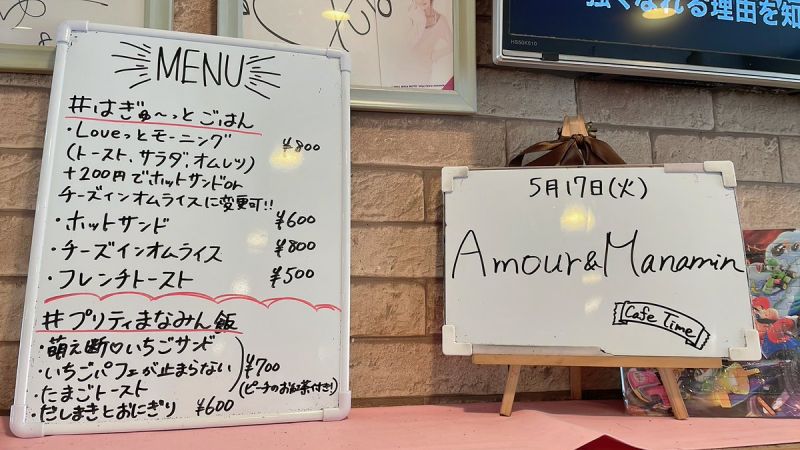 MENU
#はぎゅ〜っとごはん
・Loveっとモーニング ¥800
(トースト、サラダ、オムレツ)
+200円でホットサンドor
チーズインオムライスに変更可!!
・ホットサンド ¥600
・チーズインオムライス ¥800
・フレンチトースト ¥500
#プリティまなみん飯
・萌え断♡いちごサンド
・いちごパフェが止まらない ¥700
・たまごトースト (ピーチのお紅茶付き!)
・だしまきとおにぎり ¥600
5月17日(火)
Amour&Manamin
Cafe Time
強くなれる理由を知